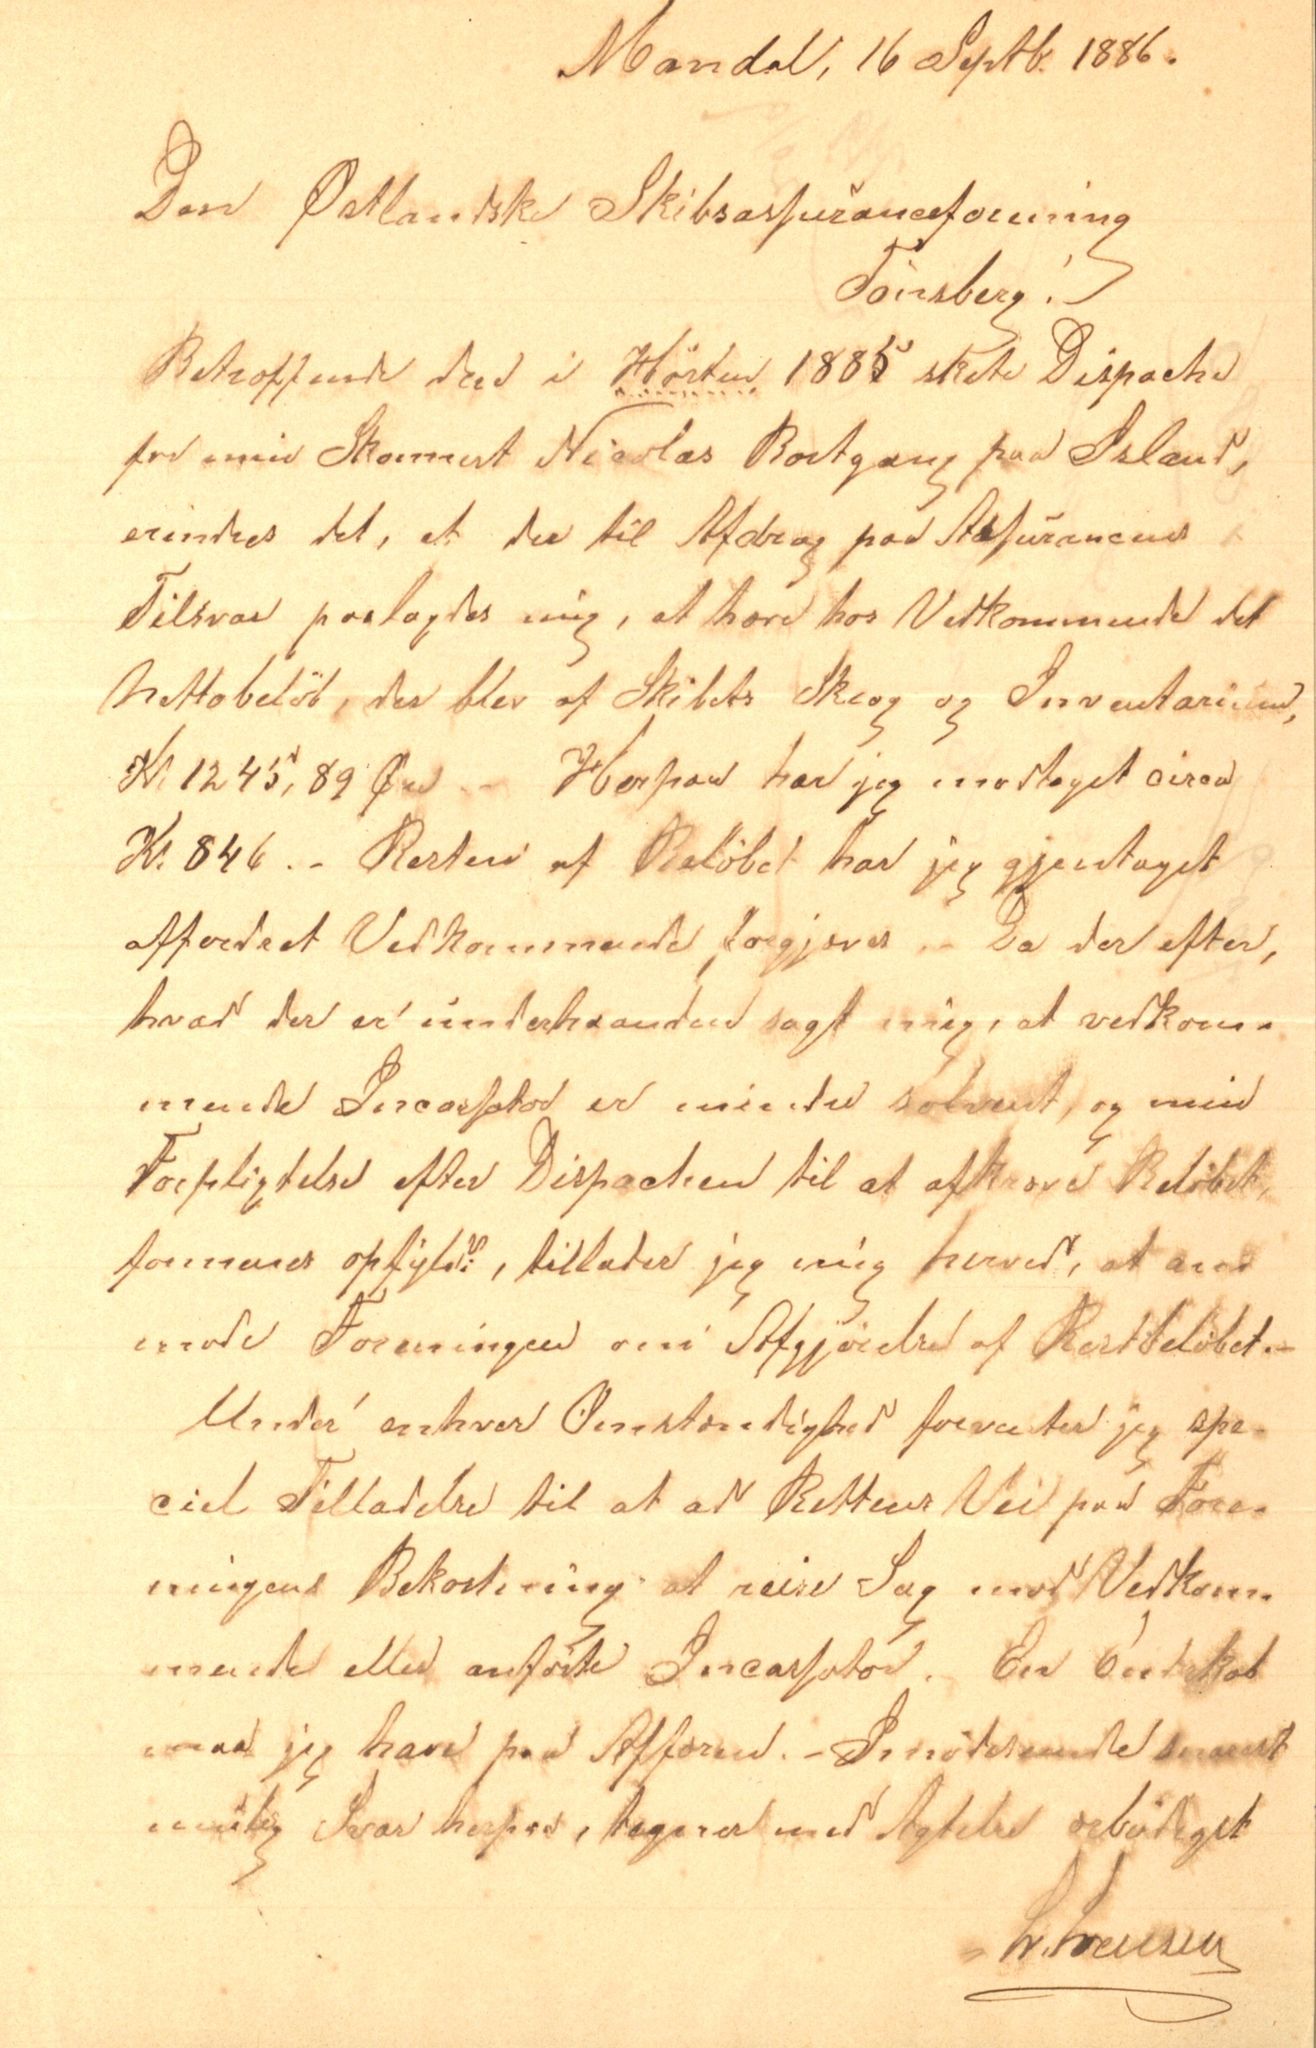 Mandal, 16 Septb. 1886.
Den Østlandske Skibsassuranceforening
Tönsberg!
Betræffende den i Hösten 1885 skete Dispache
for min Skonnert Nicolas Bortgang paa Island,
erindres det, at der til Afdrag paa Assurancens
Tilsvar paalagdes mig, at hæve hos Vedkommende det
Nettobelöb, der blev af Skibets Skrog og Inventarium,
Kr. 1245,89 Øre – Herpaa har jeg modtaget circa
Kr. 846. – Resten af Belöbet har jeg gjentaget
affordret Vedkommende forgjæves. – Da der efter,
hvad der er underhaanden sagt mig, at vedkom-
mende Incassator er mindre solvent, og min
Forpligtelse efter Dispachen til at afkræve Belöbet,
formenes opfyldt, tillader jeg mig herved, at an-
mode Foreningen om Afgjörelse af Restbelöbet. –
Under enhver Omstændighed forventer jeg spe-
ciel Tilladelse til at ad Rettens Vei paa Fore-
ningens Bekostning at reise Sag mod Vedkom-
mende eller anförte Incassator. En Endskab
maa jeg have paa Affæren. – Imödeseende snarest
mulig Svar herpaa, tegner med Agtelse ærbödigst